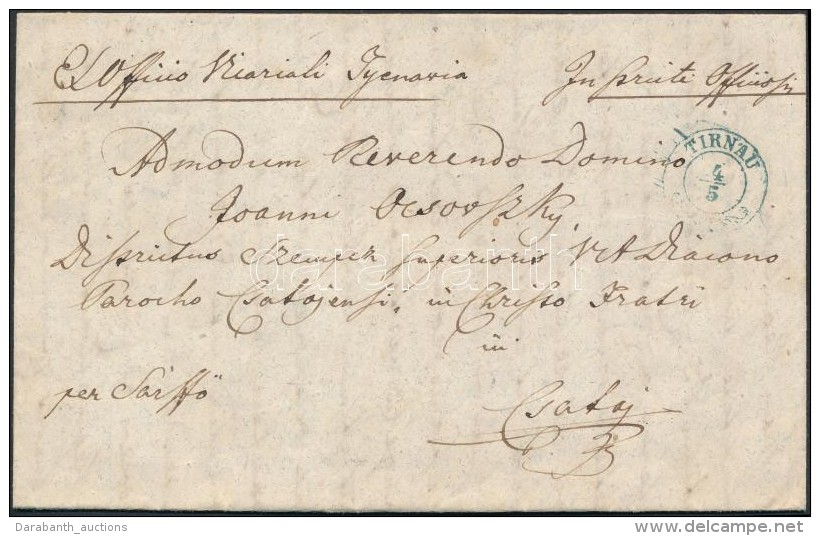 Ex Officio Vicariali Tyrnavia
In Pruiti Officiosis
TIRNAU
4/5
Admodum Reverendo Domino
Joanni Ocsovszky,
Districtus Szempcz Superioris VA Diacono
Parocho Csatajensi, in Christo Fratri
in
per Sarffö
Csataj
darabanth
Darabanth_auctions
www.delcampe.net